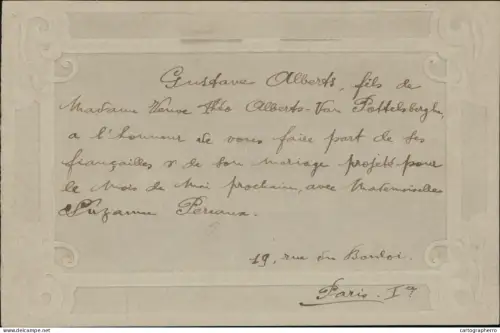 Gustave Alberts, fils de
Madame Veuve Théo Alberts-Van Pottelsberghe,
a l'honneur de vous faire part de ses
françailles & de son mariage projeté pour
le Mois de Mai prochain, avec Mademoiselle
Suzanne Periaux.
19, rue du Bouloi.
Paris. Ier